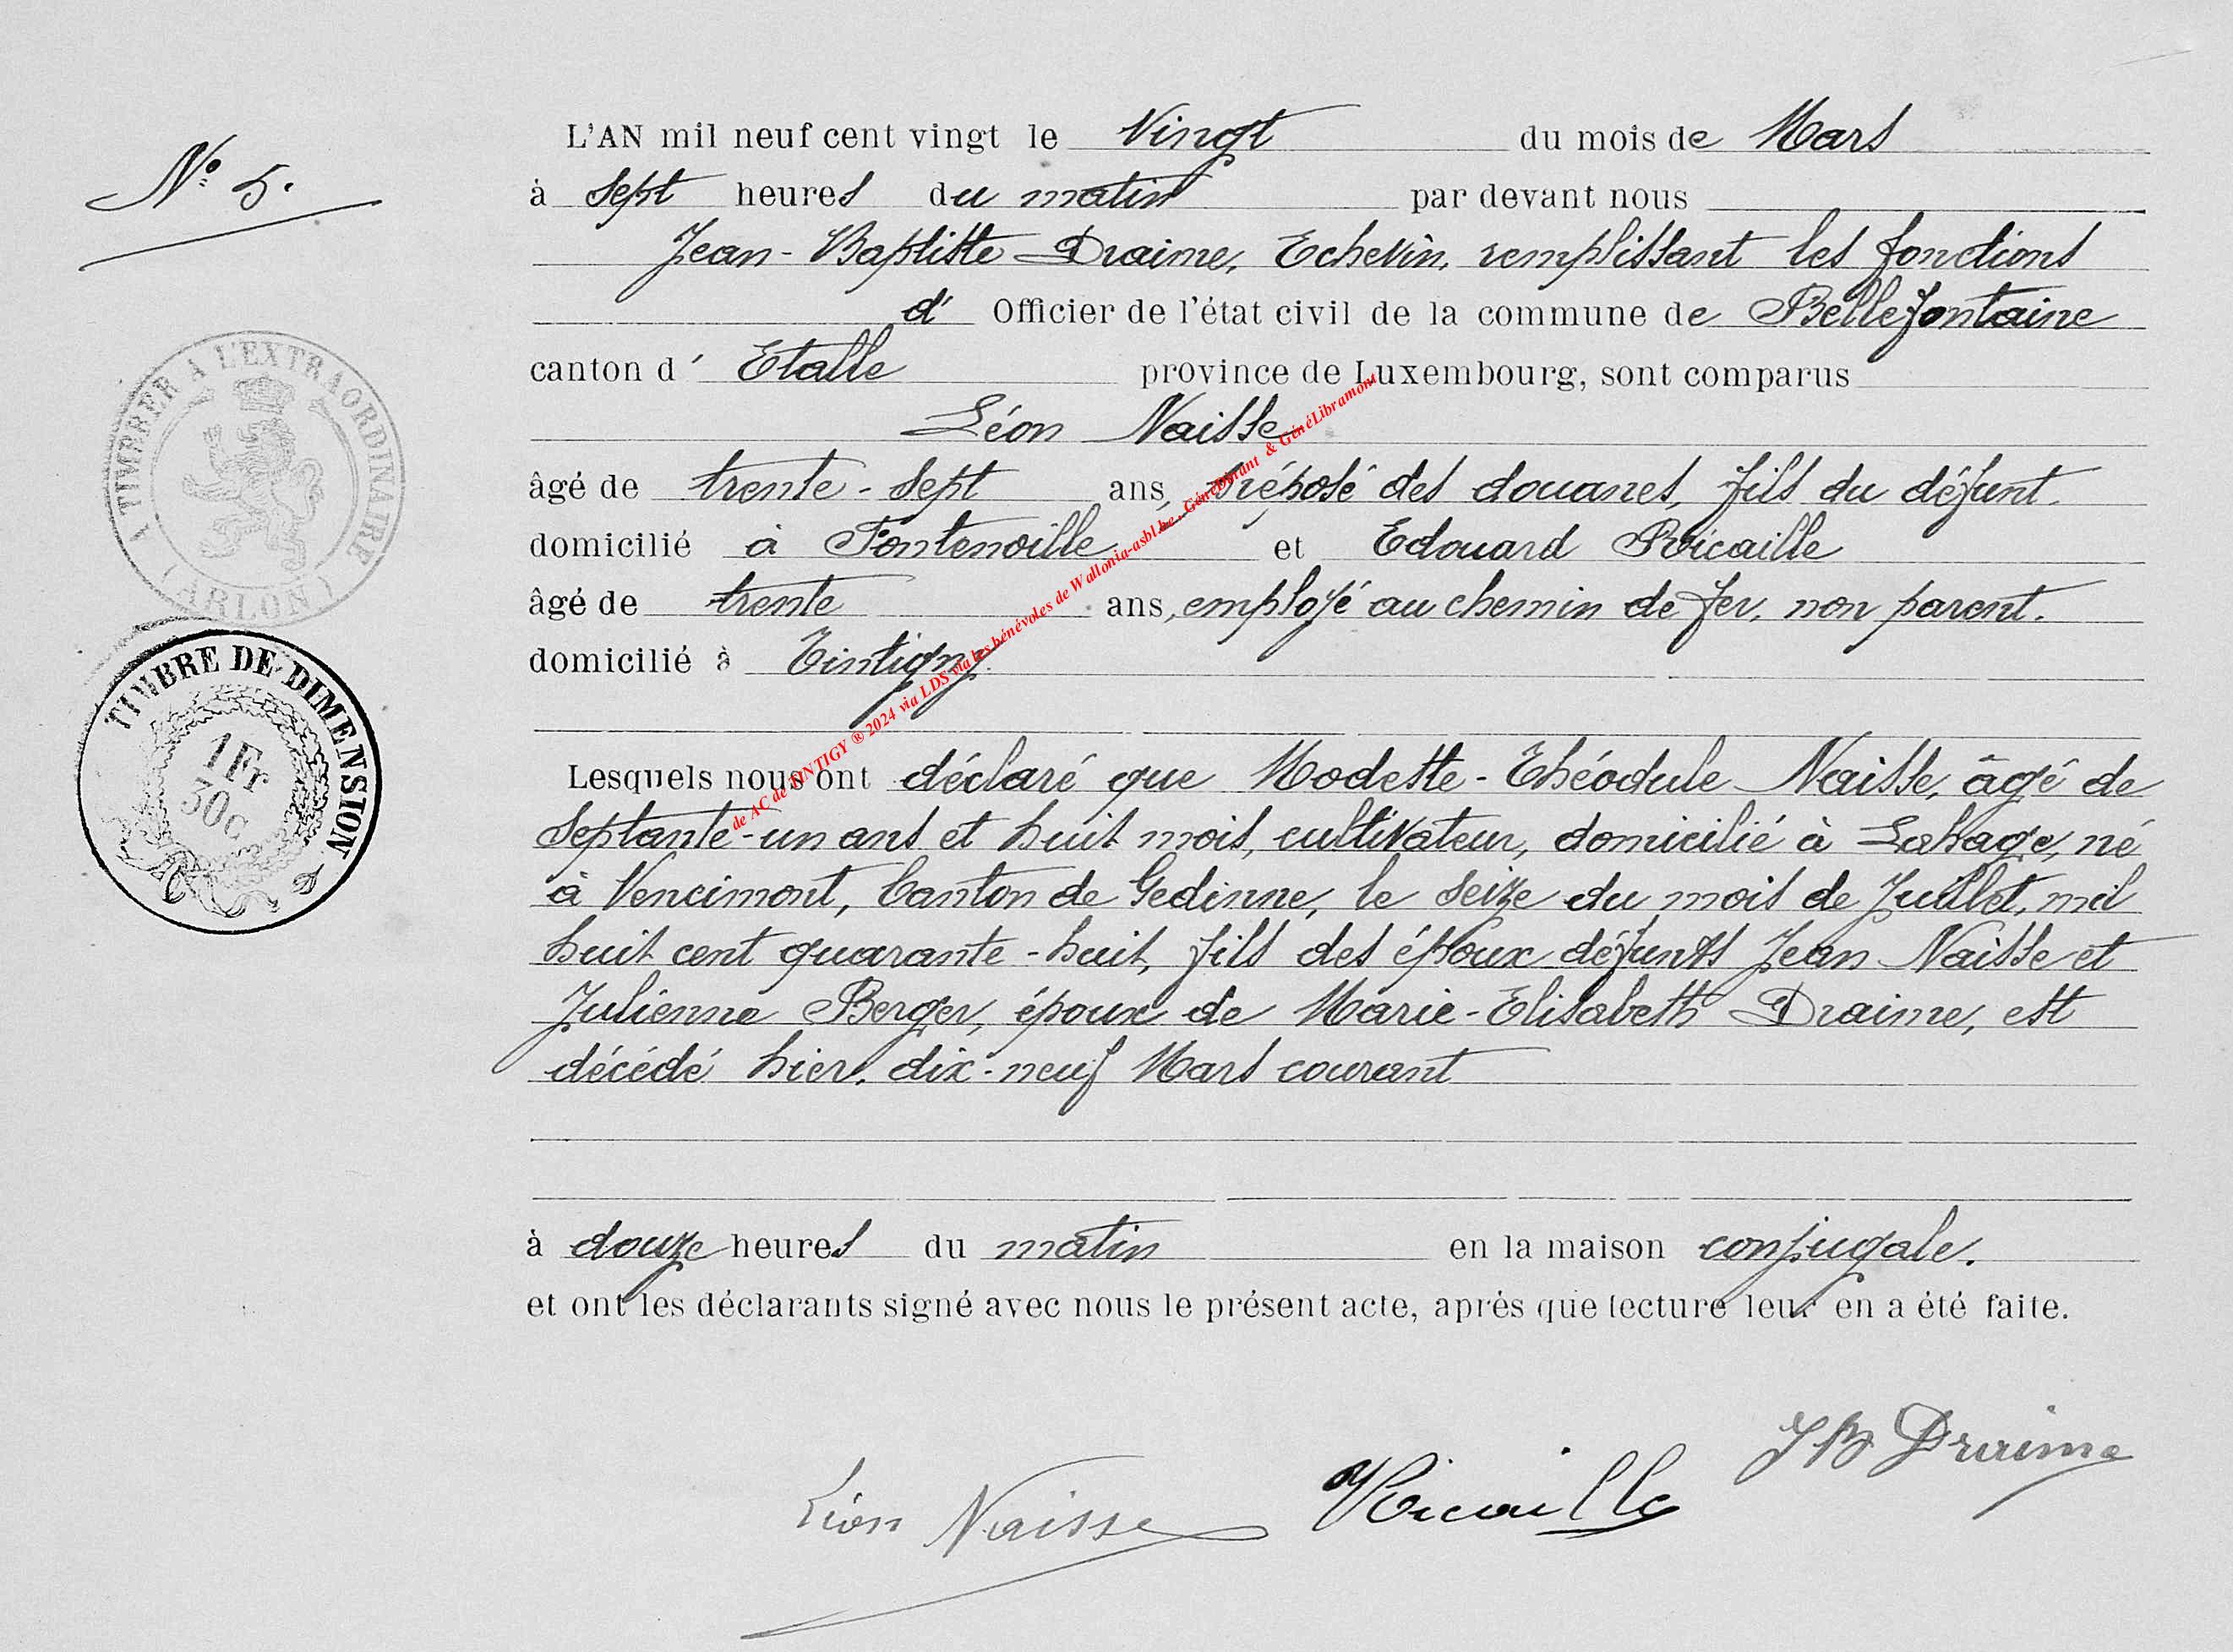 N° 5.
L'AN mil neuf cent vingt le Vingt du mois de Mars
à sept heures du matin par devant nous
Jean-Baptiste Draime, Echevin, remplissant les fonctions
d' Officier de l'état civil de la commune de Bellefontaine
canton d' Etalle province de Luxembourg, sont comparus
Léon Naisse
âgé de trente-sept ans, préposé des douanes, fils du défunt.
domicilié à Fontenoille et Edouard Roicaille
âgé de trente ans, employé au chemin de fer, non parent.
domicilié à Tintigny.
Lesquels nous ont déclaré que Modeste-Théodule Naisse, âgé de
septante-un ans et huit mois, cultivateur, domicilié à Lahage, né
à Vencimont, Canton de Gedinne, le seize du mois de Juillet, mil
huit cent quarante-huit, fils des époux défunts Jean Naisse et
Julienne Berger, époux de Marie-Elisabeth Draime, est
décédé hier, dix-neuf Mars courant
à douze heures du matin en la maison conjugale.
et ont les déclarants signé avec nous le présent acte, après que lecture leur en a été faite.
JB Draime
Léon Naisse Roicaille
A TIMBRER A L'EXTRAORDINAIRE
(ARLON)
TIMBRE DE DIMENSION
1 Fr
30c
de AC de TINTIGY ® 2024 via LDS via les bénévoles de Wallonia-asbl.be, GénéDinant & GénéLibramont